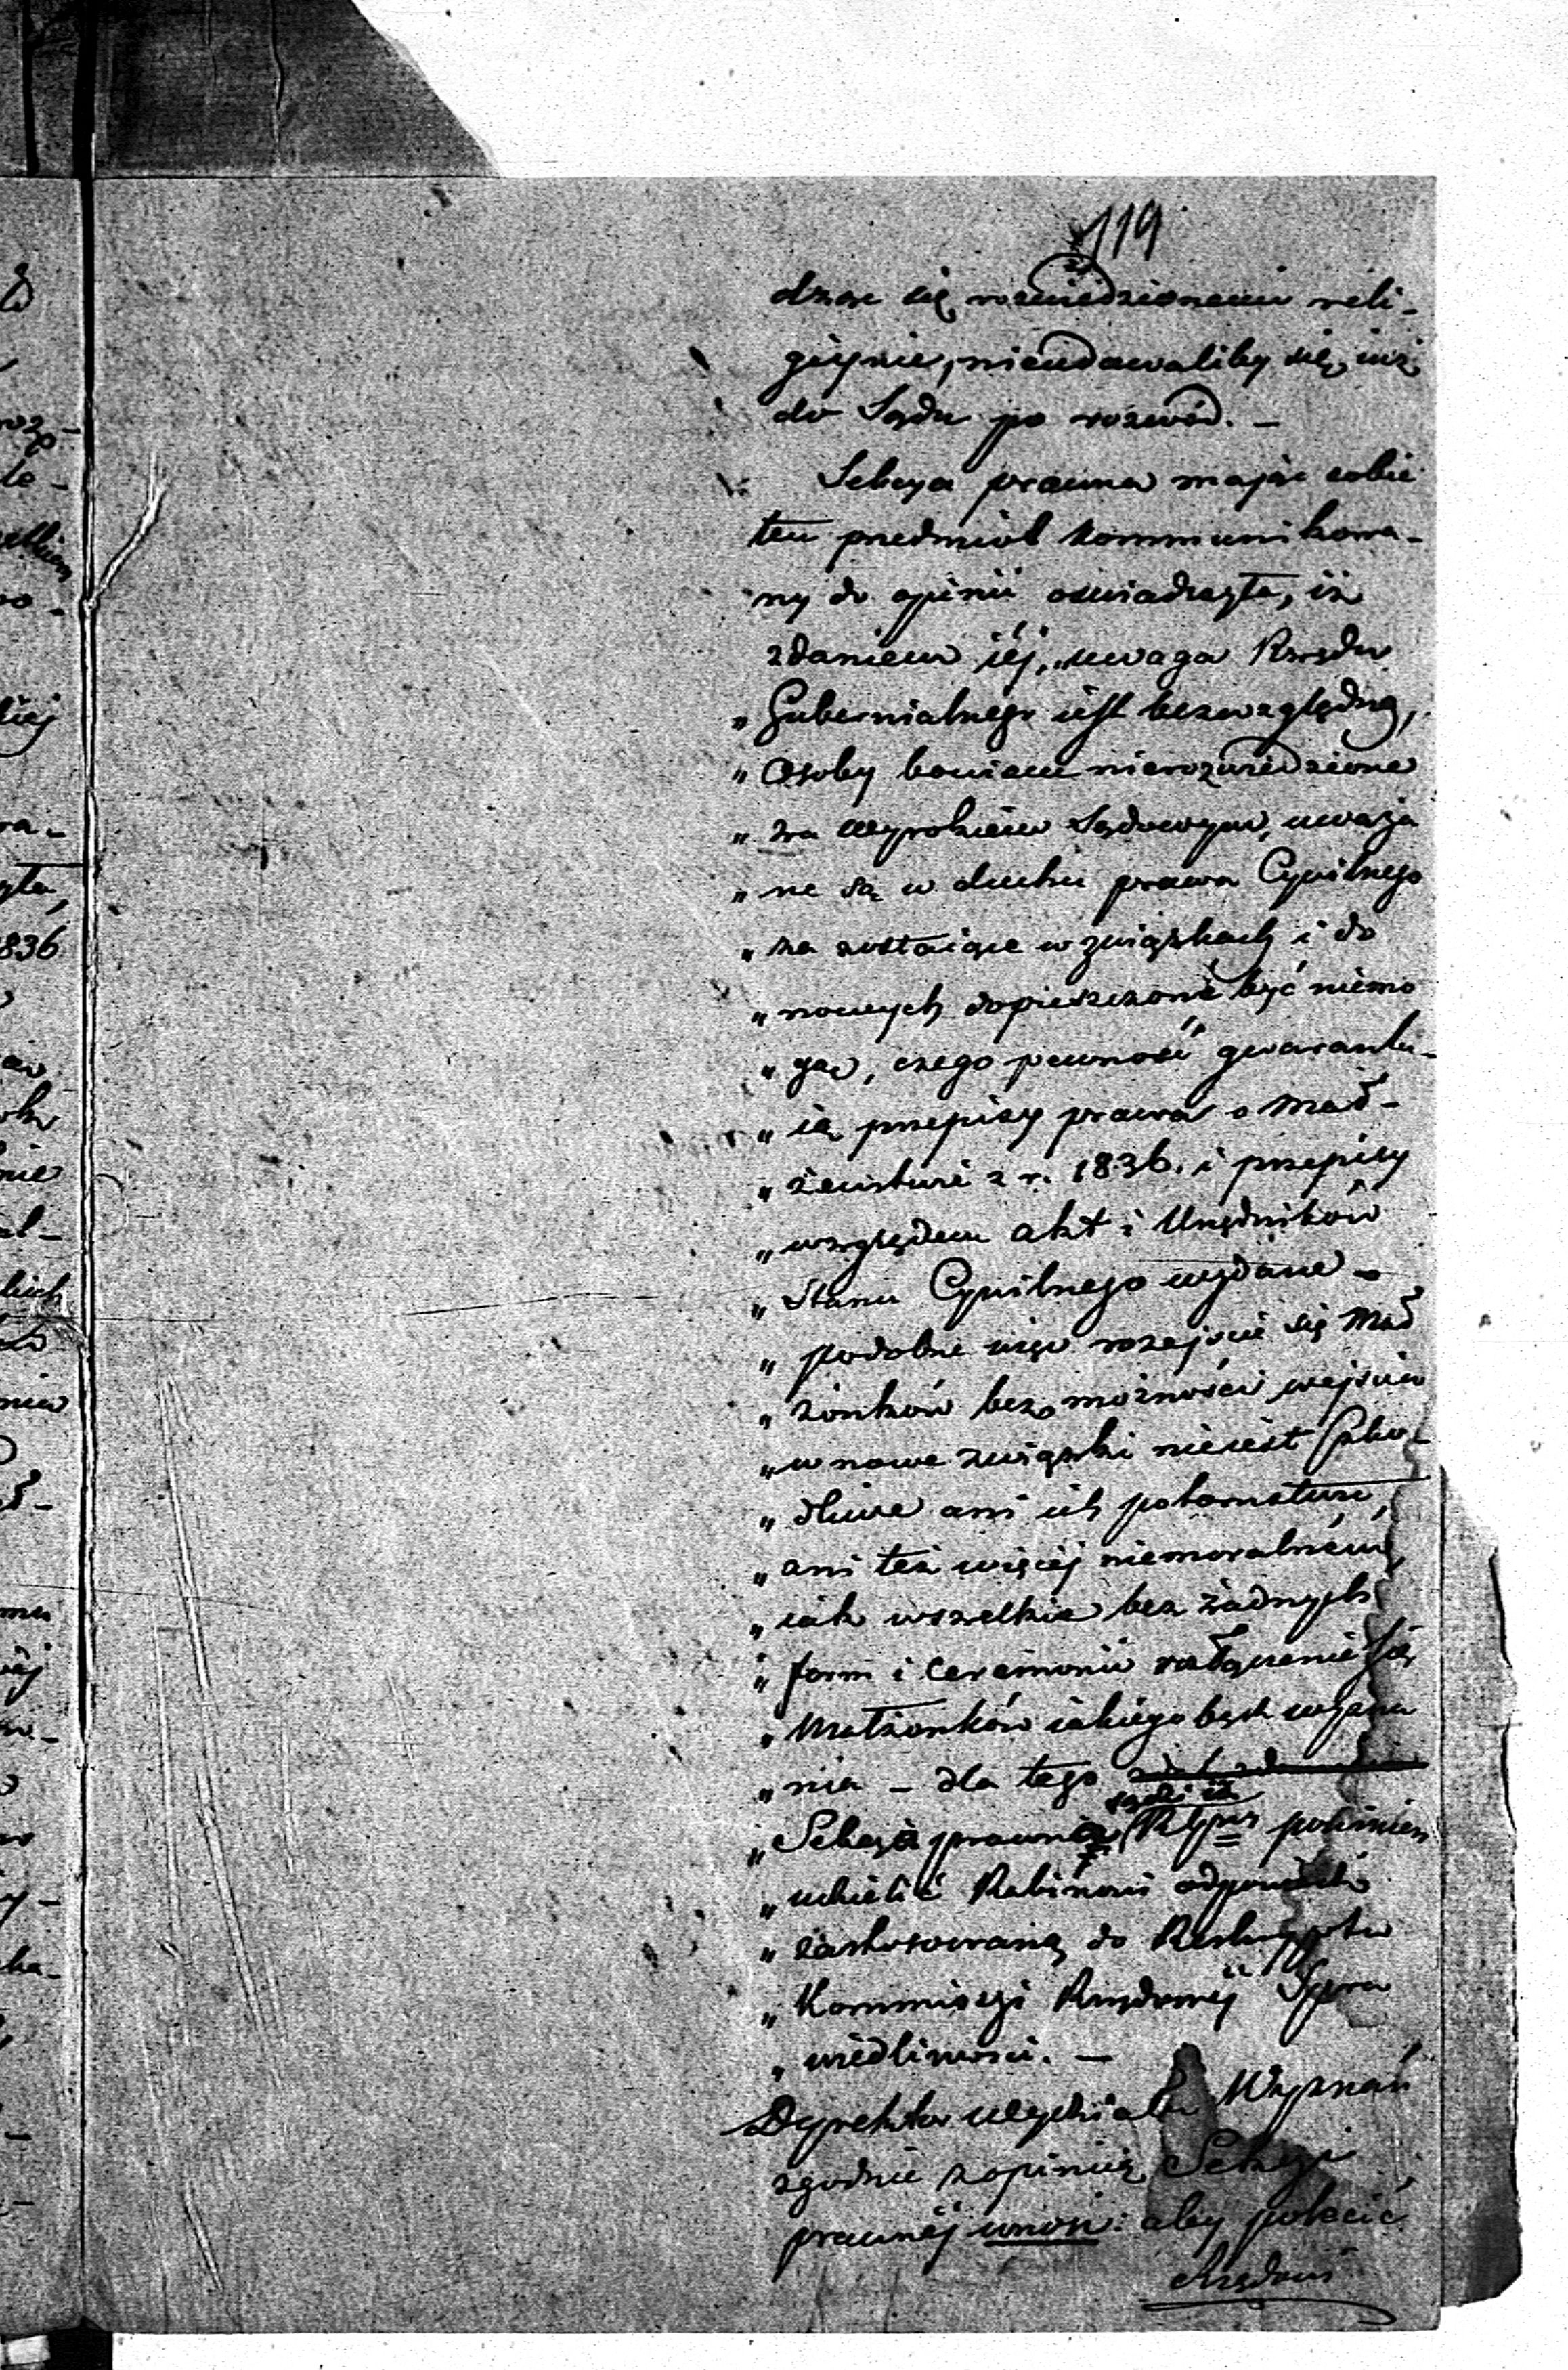 119
dząc się rozwiedzionemi reli-
giynie, nieudawaliby się, iuż
do Sądu po rozwód. —
Sekcya prawna maiąc sobie
ten przedmiot kommunikowa-
ny do opinii oświadczyła, iż
zdaniem iéj, „uwaga Rządu
„Gubernialnego iest bezwzględną,
„Osoby bowiem nierozwiedzione
„za wyrokiem Sądowym, uważa
„ne są w duchu prawa Cywilnego
„za zostaiące w związkach i do
„nowych dopuszczone być niemo
„gą, czego pewność gwarantu-
„ią przepisy prawa o Mał-
„żeństwie z r. 1836. i przepisy
„względem akt i Urzędników
„Stanu Cywilnego wydane —
„podobne więc rozejście się Mał
„żonków bez możności wejścia
„w nowe związki nieiest szko-
„dliwe ani ich potomstwu,
„ani też więcéj niemoralném,
„iak wszelkie bez żadnych
„form i ceremonii rozłączenie się
„Małżonków iakiego bądź wyzna
„nia — dla tego
„Sekcya prawna sądzi iż Rząd powinien
„udzielić Rabinowi odpowiedź
„zastosowaną do Reskryptu
„Kommissyi Rządowéj Spra
„wiedliwości. —
Dyrektor Wydziału Wyznań
zgodnie z opinią Sekcyi
prawnéj wnosi: aby polecić
Rządowi